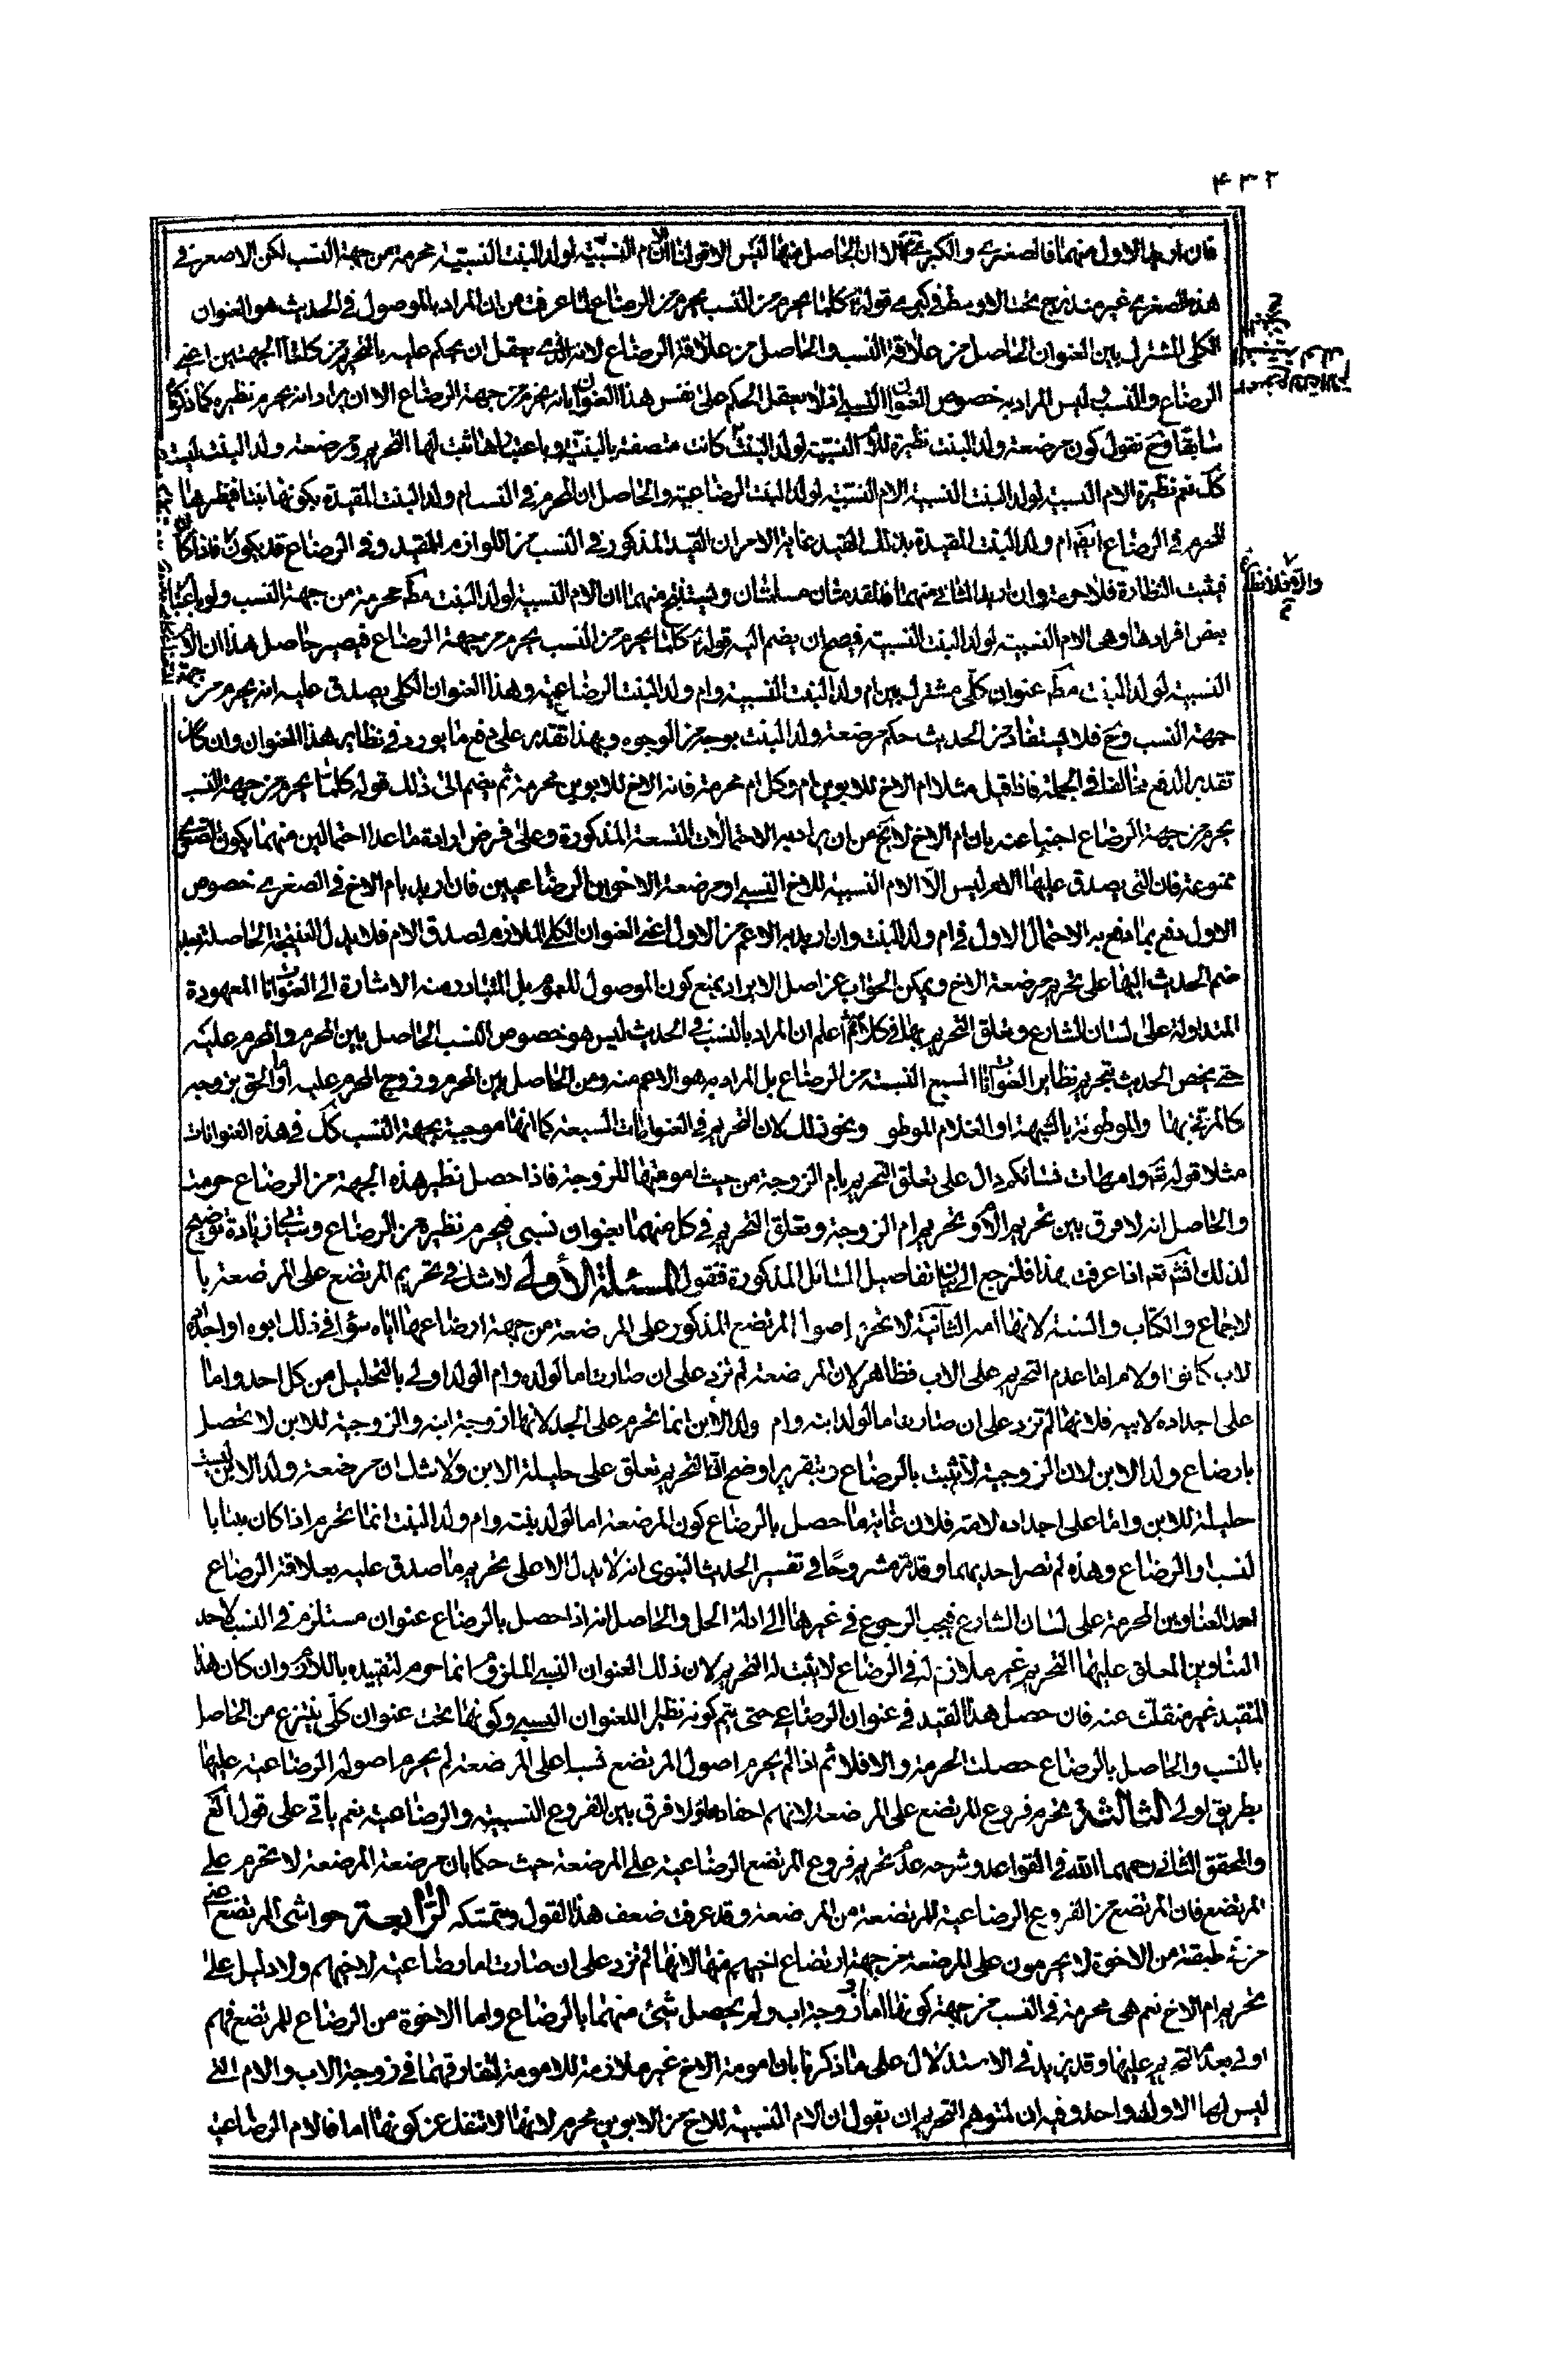 ۴۳۲
فان اريد الاول منهما فالصغرى والكبرى الا ان الحاصل منها ليس الا قولنا ان الام النسبية لولد البنت النسبية محرمة من جهة النسب لكن الاصغر في
هذه الصغرى غير مندرج تحت الاوسط في كبرى قوله كلما يحرم من النسب يحرم من الرضاع لما عرفت من ان المراد بالموصول في الحديث هو العنوان
الكلى المشترك بين العنوان الحاصل من علاقة النسب والحاصل من علاقة الرضاع لانه الذى يعقل ان يحكم عليه بالتحريم من كلتا الجهتين اعنى
الرضاع والنسب وليس المراد به خصوص العنوان النسبى اذ لا يعقل الحكم على نفس هذا العنوان بانه يحرم من جهة الرضاع الا ان يراد انه يحرم نظيره كما ذكرنا
سابقا وح نقول كون مرضعة ولد البنت نظيرة للام النسبية لولد البنت كانت متصفة بالبنتية وباعتبارها ثبت لها التحريم ومرضعة ولد البنت ليست
كك نعم نظيرة الام النسبية لولد البنت النسبية الام النسبية لولد البنت الرضاعية والحاصل ان المحرم في النسب ام ولد البنت المقيدة بكونها بنتا فيظهرها
المحرم في الرضاع ايضا ام ولد البنت المقيدة بذلك القيد غاية الامر ان القيد المذكور في النسب من اللوازم للمقيد وفي الرضاع قد يكون فاذا كان
فيثبت النظارة فلا حرمة وان اريد الثانى منهما فالمقدمتان مسلمتان ويستنتج منهما ان الام النسبية لولد البنت مط محرمة من جهة النسب ولو باعتبار
بعض افرادها وهى الام النسبية لولد البنت النسبية فيصح ان يضم اليه قوله كلما يحرم من النسب يحرم من جهة الرضاع فيصير حاصل هذا ان الام
النسبية لولد البنت مط عنوان كلى مشترك بين ام ولد البنت النسبية وام ولد البنت الرضاعية وهذا العنوان الكلى يصدق عليه انه يحرم من
جهة النسب وح فلا يستفاد من الحديث حكم مرضعة ولد البنت بوجه من الوجوه وبهذا تقدر على دفع ما يورد في نظاير هذا العنوان وان كان
تقدير الدفع مخالفا في الجملة فاذا قيل مثلا ام الاخ للابوين ام وكل ام محرمة فانه الاخ للابوين محرمة ثم يضم الى ذلك قوله كلما يحرم من جهة النسب
يحرم من جهة الرضاع اجيب عنه بان ام الاخ لا يخ من ان يراد به الاحتمالات التسعة المذكورة وعلى فرض ارادة ما عدا احتمالين منهما يكون الصغرى
ممنوعة فان التى يصدق عليها الام ليس الا الام النسبية للاخ النسبى او مرضعة الاخوين الرضاعيين فان اريد بام الاخ في الصغرى خصوص
الاول دفع بما دفع به الاحتمال الاول في ام ولد البنت وان اريد به الاعم من الاول اعنى العنوان الكلى الملازم لصدق الام فلا يدل النتيجة الحاصلة بعد
ضم الحديث اليها على تحريم مرضعة الاخ ويمكن الجواب عن اصل الايراد بمنع كون الموصول للعموم بل المتبادر منه الاشارة الى العنوانات المعهودة
المتداولة على لسان الشارع وتعلق التحريم بها في كلامه ثم اعلم ان المراد بالنسب في الحديث ليس هو خصوص النسب الحاصل بين المحرم والمحرم عليه
حتى يختص الحديث بتحريم نظاير العنوانات السبع النسبية من الرضاع بل المراد به هو الاعم منه ومن الحاصل بين المحرم وزوج المحرم عليه او الحق بزوجه
كالمزنى بها والموطوئة بالشبهة او الغلام الموطو ونحو ذلك لان التحريم في العنوانات السبعة كما انها موجبة بجهة النسب كك في هذه العنوانات
مثلا قوله تعالى وامهات نسائكم دال على تعلق التحريم بام الزوجة من حيث امومتها للزوجة فاذا حصل نظير هذه الجهة من الرضاع حرمت
والحاصل انه لا فرق بين تحريم الام وتحريم ام الزوجة وتعلق التحريم في كل منهما بعنوان نسبى فيحرم نظيره من الرضاع وسيأتى زيادة توضيح
لذلك انشاء الله تعالى اذا عرفت هذا فلنرجع الى بيان تفاصيل المسائل المذكورة فنقول المسئلة الاولى لا شك في تحريم المرتضع على المرضعة با
لاجماع والكتاب والسنة لانها امه الثانية لا تحرم اصول المرتضع المذكور على المرضعة من جهة ارضاعها اياه سواء في ذلك ابوه او اجداده
لاب كانوا او لام اما عدم التحريم على الاب فظاهر لان المرضعة لم تزد على ان صارت اما لولده وام الولد اولى بالتحليل من كل احد واما
على اجداده لابيه فلانها لم تزد على ان صارت اما لولد ابنه وام ولد الابن انما تحرم على الجد لانها زوجة ابنه والزوجية للابن لا تحصل
بارضاع ولد الابن لان الزوجية لا تثبت بالرضاع وبتقرير اوضح ان التحريم تعلق على حليلة الابن ولا شك ان مرضعة ولد الابن ليست
حليلة للابن واما على اجداده لامه فلان غاية ما حصل بالرضاع كون المرضعة اما لولد بنته وام ولد البنت انما تحرم اذا كان بنتا با
لنسب او الرضاع وهذه لم تصر احديهما وقد مر مشروحا في تفسير الحديث النبوى انه لا يدل الا على تحريم ما صدق عليه بعلاقة الرضاع
احد العناوين المحرمة على لسان الشارع فيجب الرجوع في غيرها الى ادلة الحل والحاصل انه اذا حصل بالرضاع عنوان مستلزم في النسب لاحد
العناوين المعلق عليها التحريم غير ملازم له في الرضاع لا يثبت له التحريم لان ذلك العنوان النسبى الملزوم انما حرم لتقييده باللازم وان كان هذا
التقييد غير منفك عنه فان حصل هذا القيد في عنوان الرضاعى حتى يتم كونه نظيرا للعنوان النسبى وكونها تحت عنوان كلى ينتزع من الحاصل
بالنسب والحاصل بالرضاع حصلت الحرمة والا فلا ثم اذا لم يحرم اصول المرتضع نسبا على المرضعة لم يحرم اصوله الرضاعية عليها
بطريق اولى الثالثة تحرم فروع المرتضع على المرضعة لانهم احفادها ولا فرق بين الفروع النسبية والرضاعية نعم يأتى على قول العلامة
والمحقق الثانى رحمهما الله في القواعد وشرحه عدم تحريم فروع المرتضع الرضاعية على المرضعة حيث حكما بان مرضعة المرضعة لا تحرم على
المرتضع فان المرتضع من الفروع الرضاعية للمرتضعة من المرضعة وقد عرفت ضعف هذا القول ومتمسكه الرابعة حواشى المرتضع
من في طبقته من الاخوة لا يحرمون على المرضعة من جهة ارتضاع اخيهم منها لانها لم تزد على ان صارت اما رضاعية لاخيهم ولا دليل على
تحريم ام الاخ نعم هى محرمة في النسب من جهة كونها اما او زوجة اب ولم يحصل شىء منهما بالرضاع واما الاخوة من الرضاع للمرتضع فهم
اولى بعدم التحريم عليها وقد يزيد في الاستدلال على ما ذكرنا بان امومة الاخ غير ملازمة للامومة لتفارقهما في زوجة الاب والام التى
ليس لها الا ولد واحد وفيه ان لمتوهم التحريم ان يقول ان الام النسبية للاخ من الابوين محرم لانها لا تنفك عن كونها اما فالام الرضاعية